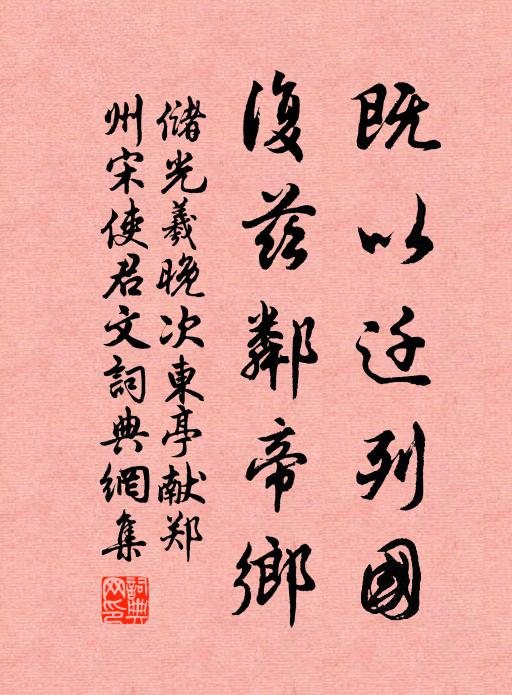 既以迁列國
復兹鄰帝鄉
儲光羲晚次東亭献郑
州宋使君文詞典網集
詞典网印